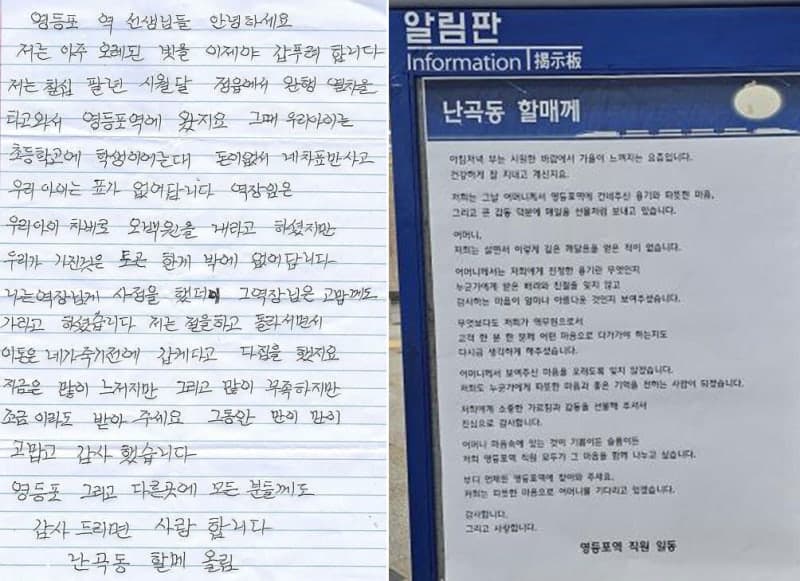 영등포 역 선생님들 안녕하세요
저는 아주 오레된 빛을 이제야 갑푸려 합니다
저는 칠십 팔년 시월달 정읍에서 완행 열차을
타고와서 영등포역에 왔지요 그때 우리아이는
초등학고에 학생이에는대 돈이없서 네차표만사고
우리 아이는 표가 없어답니다 역장임은
우리아이 차비로 오백원을 게라고 하셨지만
우리가 가진것은 토큰 한게 밖에 없어답니다
나는역장님게 사정을 했더니 그역장님은 고맙께도
가라고 하셨습니다 저는 절을하고 돌라서면서
이돈은 네가죽기전에 갑게다고 다짐을 했지요
지금은 많이 느저지만 그리고 많이 부족하지만
조금 이라도 받아 주세요 그동안 만이 만이
고맙고 감사 했습니다
영등포 그리고 다른곳에 모든 분들께도
감사 드리면 사랑 합니다
난곡동 할메 올림
알림판
Information 揭示板
난곡동 할매께
아침저녁 부는 시원한 바람에서 가을이 느껴지는 요즘입니다.
건강하게 잘 지내고 계신지요.
저희는 그날 어머니께서 영등포역에 건네주신 용기와 따뜻한 마음,
그리고 큰 감동 덕분에 매일을 선물처럼 보내고 있습니다.
어머니,
저희는 살면서 이렇게 깊은 깨달음을 얻은 적이 없습니다.
어머니께서는 저희에게 진정한 용기란 무엇인지
누군가에게 받은 배려와 친절을 잊지 않고
감사하는 마음이 얼마나 아름다운 것인지 보여주셨습니다.
무엇보다도 저희가 역무원으로서
고객 한 분 한 분께 어떤 마음으로 다가가야 하는지도
다시금 생각하게 해주셨습니다.
어머니께서 보여주신 마음을 오래도록 잊지 않겠습니다.
저희도 누군가에게 따뜻한 마음과 좋은 기억을 전하는 사람이 되겠습니다.
저희에게 소중한 가르침과 감동을 선물해 주셔서
진심으로 감사합니다.
어머니 마음속에 있는 것이 기쁨이든 슬픔이든
저희 영등포역 직원 모두가 그 마음을 함께 나누고 싶습니다.
부디 언제든 영등포역에 찾아와 주세요.
저희는 따뜻한 마음으로 어머니를 기다리고 있겠습니다.
감사합니다.
그리고 사랑합니다.
영등포역 직원 일동